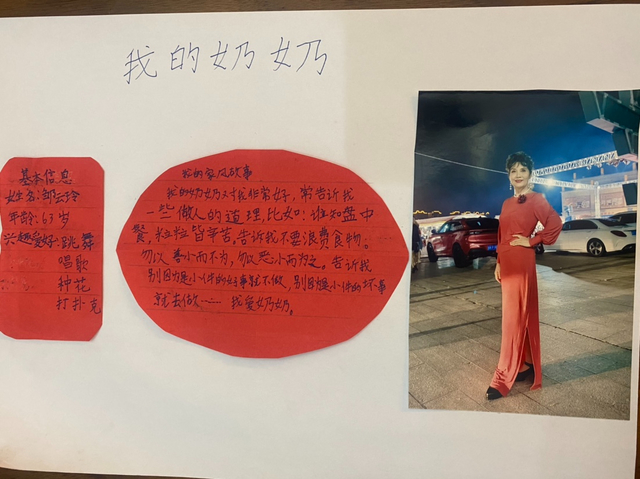 我的奶奶
基本信息
姓名:邹云玲
年龄:63岁
兴趣爱好:跳舞
唱歌
种花
打扑克
我的家风故事
我的奶奶对我非常好,常告诉我
一些做人的道理,比如:谁知盘中
餐,粒粒皆辛苦,告诉我不要浪费食物。
勿以善小而不为,勿以恶小而为之。告诉我
别因为是小件的好事就不做,别因为是小件的坏事
就去做……我爱奶奶。